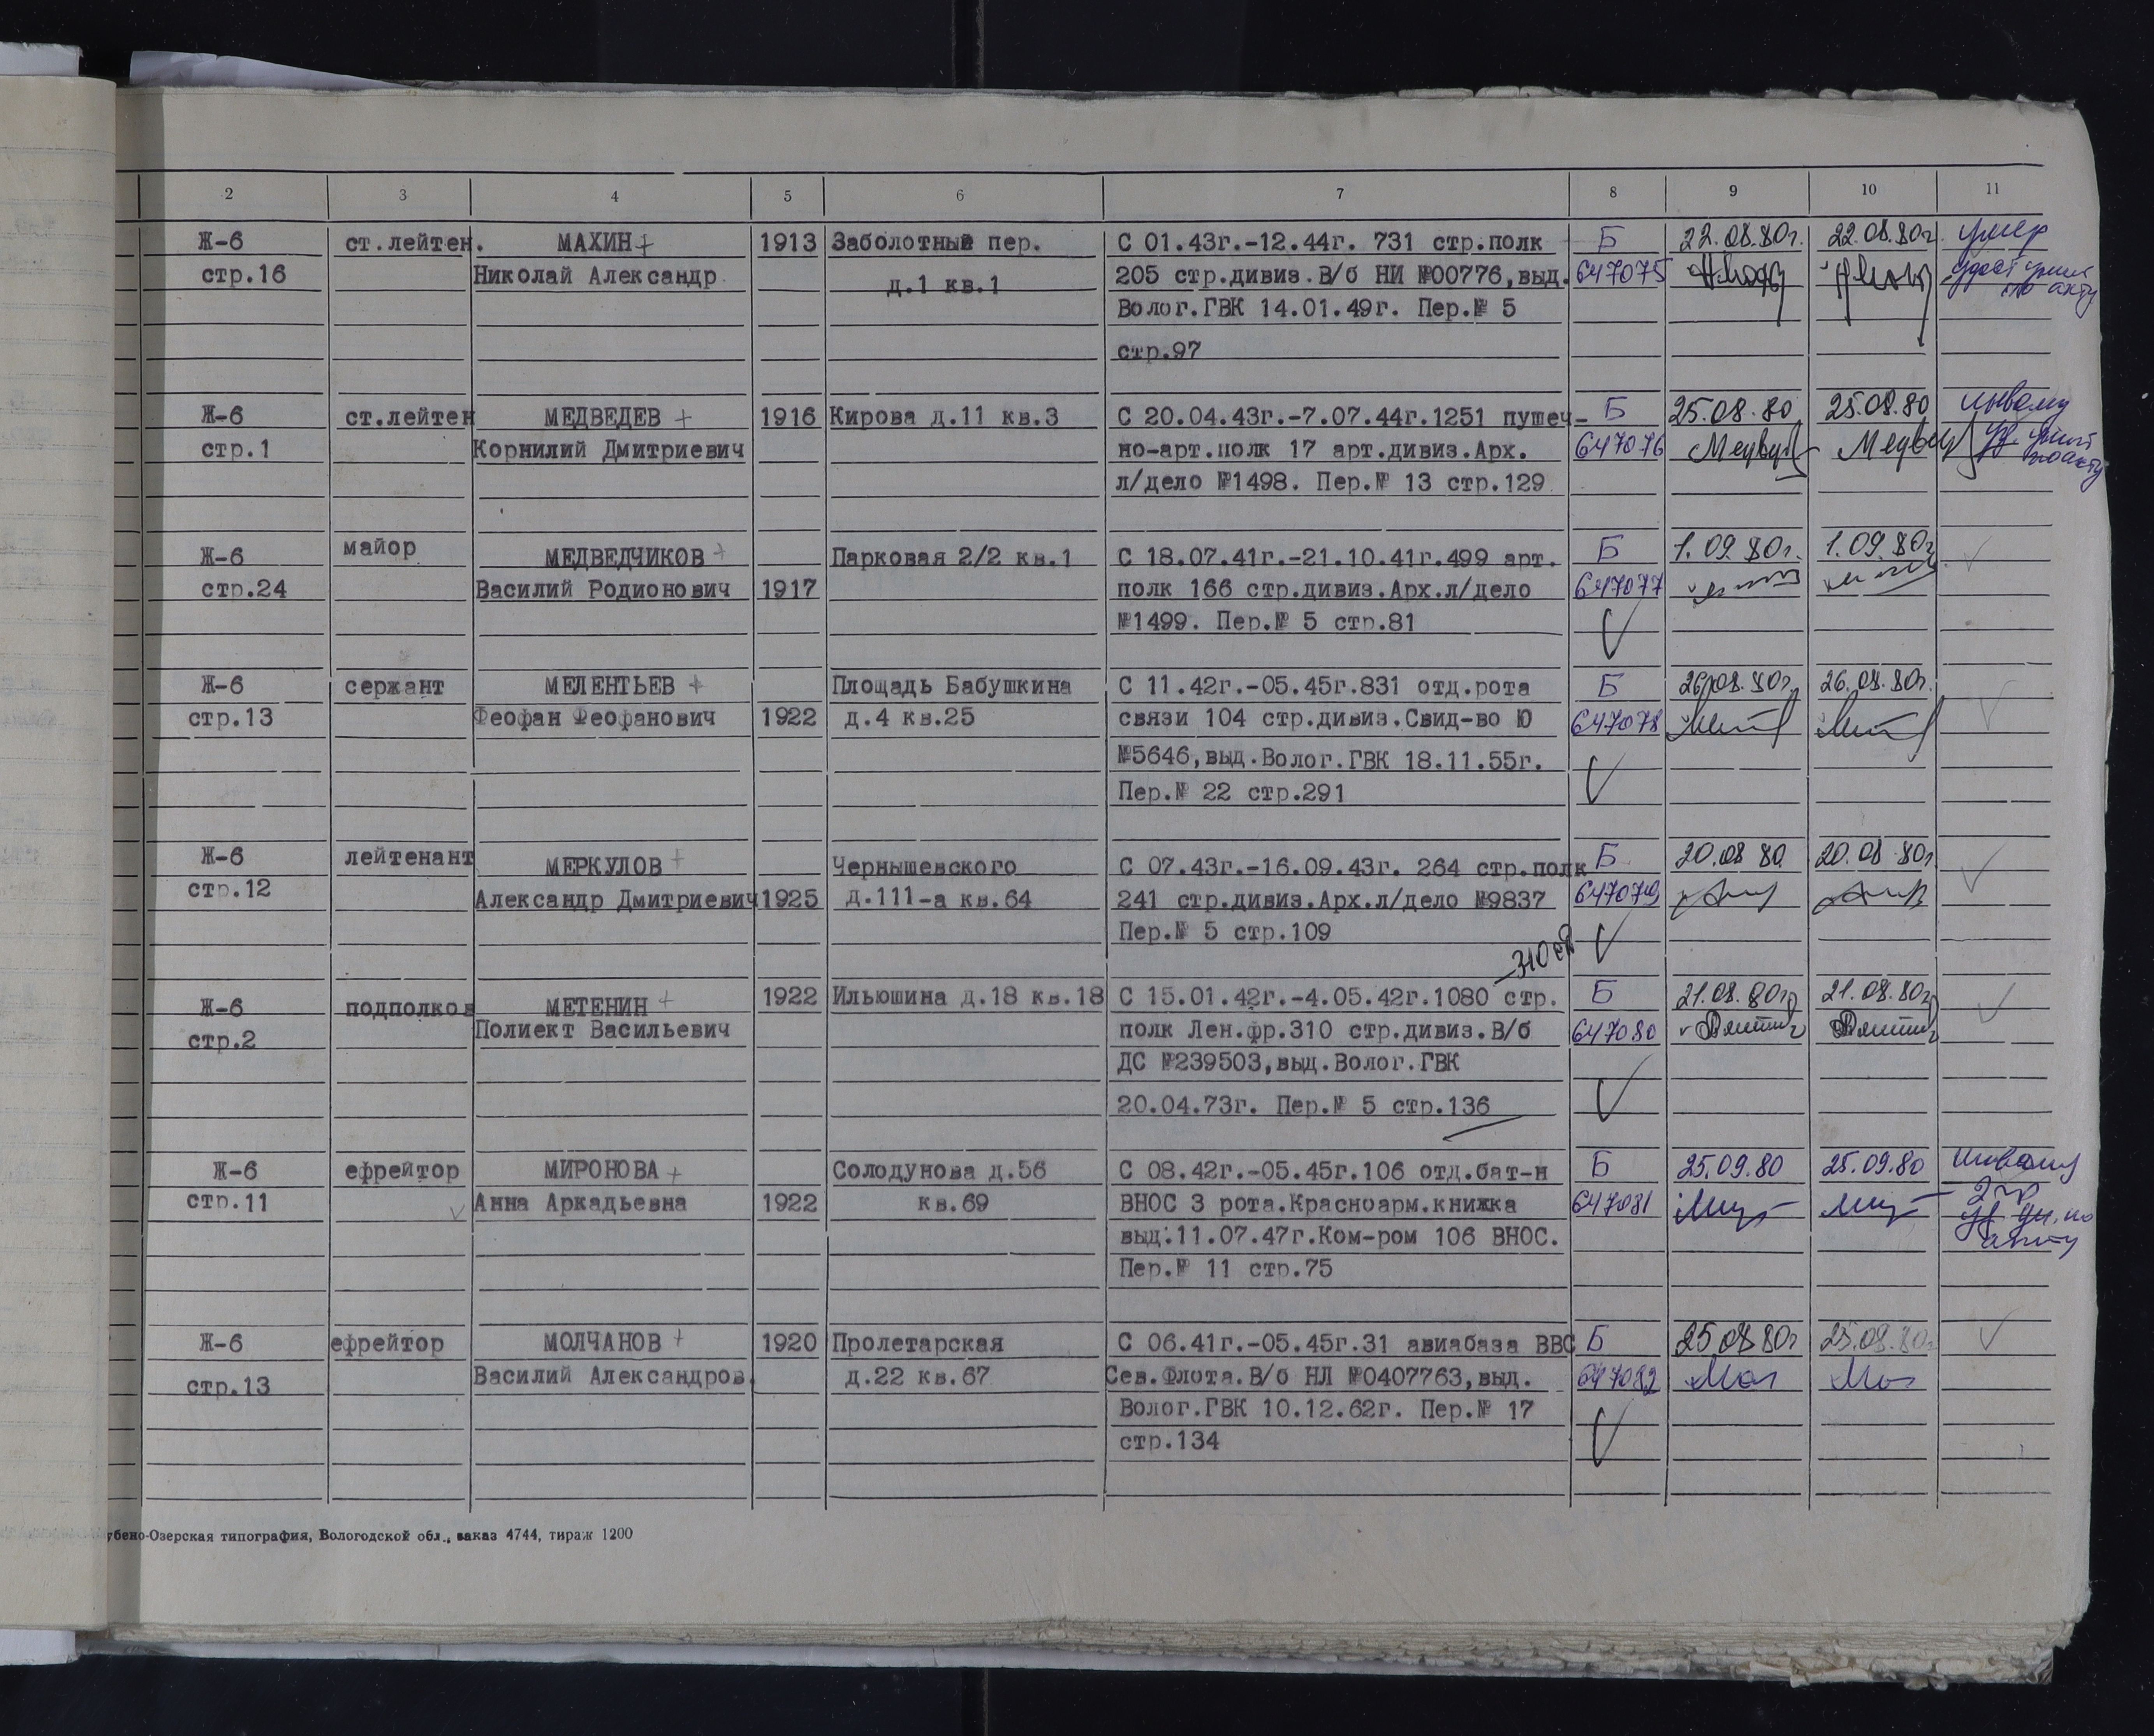 2 3 4 5 6 7 8 9 10 11
Ж-6 ст.лейтен. МАХИН + 1913 Заболотный пер. С 01.43г.-12.44г. 731 стр.полк Б 22.08.80г. 22.08.80г. умер
стр.16 Николай Александр д.1 кв.1 205 стр.дивиз.В/б НИ №00776,выд. 647075
Волог.ГВК 14.01.49г. Пер.№ 5
стр.97
Ж-6 ст.лейтен МЕДВЕДЕВ + 1916 Кирова д.11 кв.3 С 20.04.43г.-7.07.44г.1251 пушеч- Б 25.08.80 25.08.80
стр.1 Корнилий Дмитриевич но-арт.полк 17 арт.дивиз.Арх. 647076
л/дело №1498. Пер.№ 13 стр.129
Ж-6 майор МЕДВЕДЧИКОВ + Парковая 2/2 кв.1 С 18.07.41г.-21.10.41г.499 арт. Б 1.09.80г. 1.09.80г
стр.24 Василий Родионович 1917 полк 166 стр.дивиз.Арх.л/дело 647077
№1499. Пер.№ 5 стр.81
Ж-6 сержант МЕЛЕНТЬЕВ + Площадь Бабушкина С 11.42г.-05.45г.831 отд.рота Б 26.08.80г. 26.08.80г.
стр.13 Феофан Феофанович 1922 д.4 кв.25 связи 104 стр.дивиз.Свид-во Ю 647078
№5646,выд.Волог.ГВК 18.11.55г.
Пер.№ 22 стр.291
Ж-6 лейтенант МЕРКУЛОВ + Чернышевского С 07.43г.-16.09.43г. 264 стр.полк Б 20.08 80 20.08 80г
стр.12 Александр Дмитриевич 1925 д.111-а кв.64 241 стр.дивиз.Арх.л/дело №9837 647079
Пер.№ 5 стр.109
Ж-6 подполков МЕТЕНИН + 1922 Ильюшина д.18 кв.18 С 15.01.42г.-4.05.42г.1080 стр. Б 21.08.80г 21.08.80г
стр.2 Полиект Васильевич полк Лен.фр.310 стр.дивиз.В/б 647080
ДС №239503,выд.Волог.ГВК
20.04.73г. Пер.№ 5 стр.136
Ж-6 ефрейтор МИРОНОВА + Солодунова д.56 С 08.42г.-05.45г.106 отд.бат-н Б 25.09.80 25.09.80
стр.11 Анна Аркадьевна 1922 кв.69 ВНОС 3 рота.Красноарм.книжка 647081
выд.11.07.47г.Ком-ром 106 ВНОС.
Пер.№ 11 стр.75
Ж-6 ефрейтор МОЛЧАНОВ + 1920 Пролетарская С 06.41г.-05.45г.31 авиабаза ВВС Б 25.08.80г 25.08.80г
стр.13 Василий Александров. д.22 кв.67 Сев.Флота.В/б НЛ №0407763,выд. 647082 Мол Мол
Волог.ГВК 10.12.62г. Пер.№ 17
стр.134
убено-Озерская типография, Вологодской обл., заказ 4744, тираж 1200